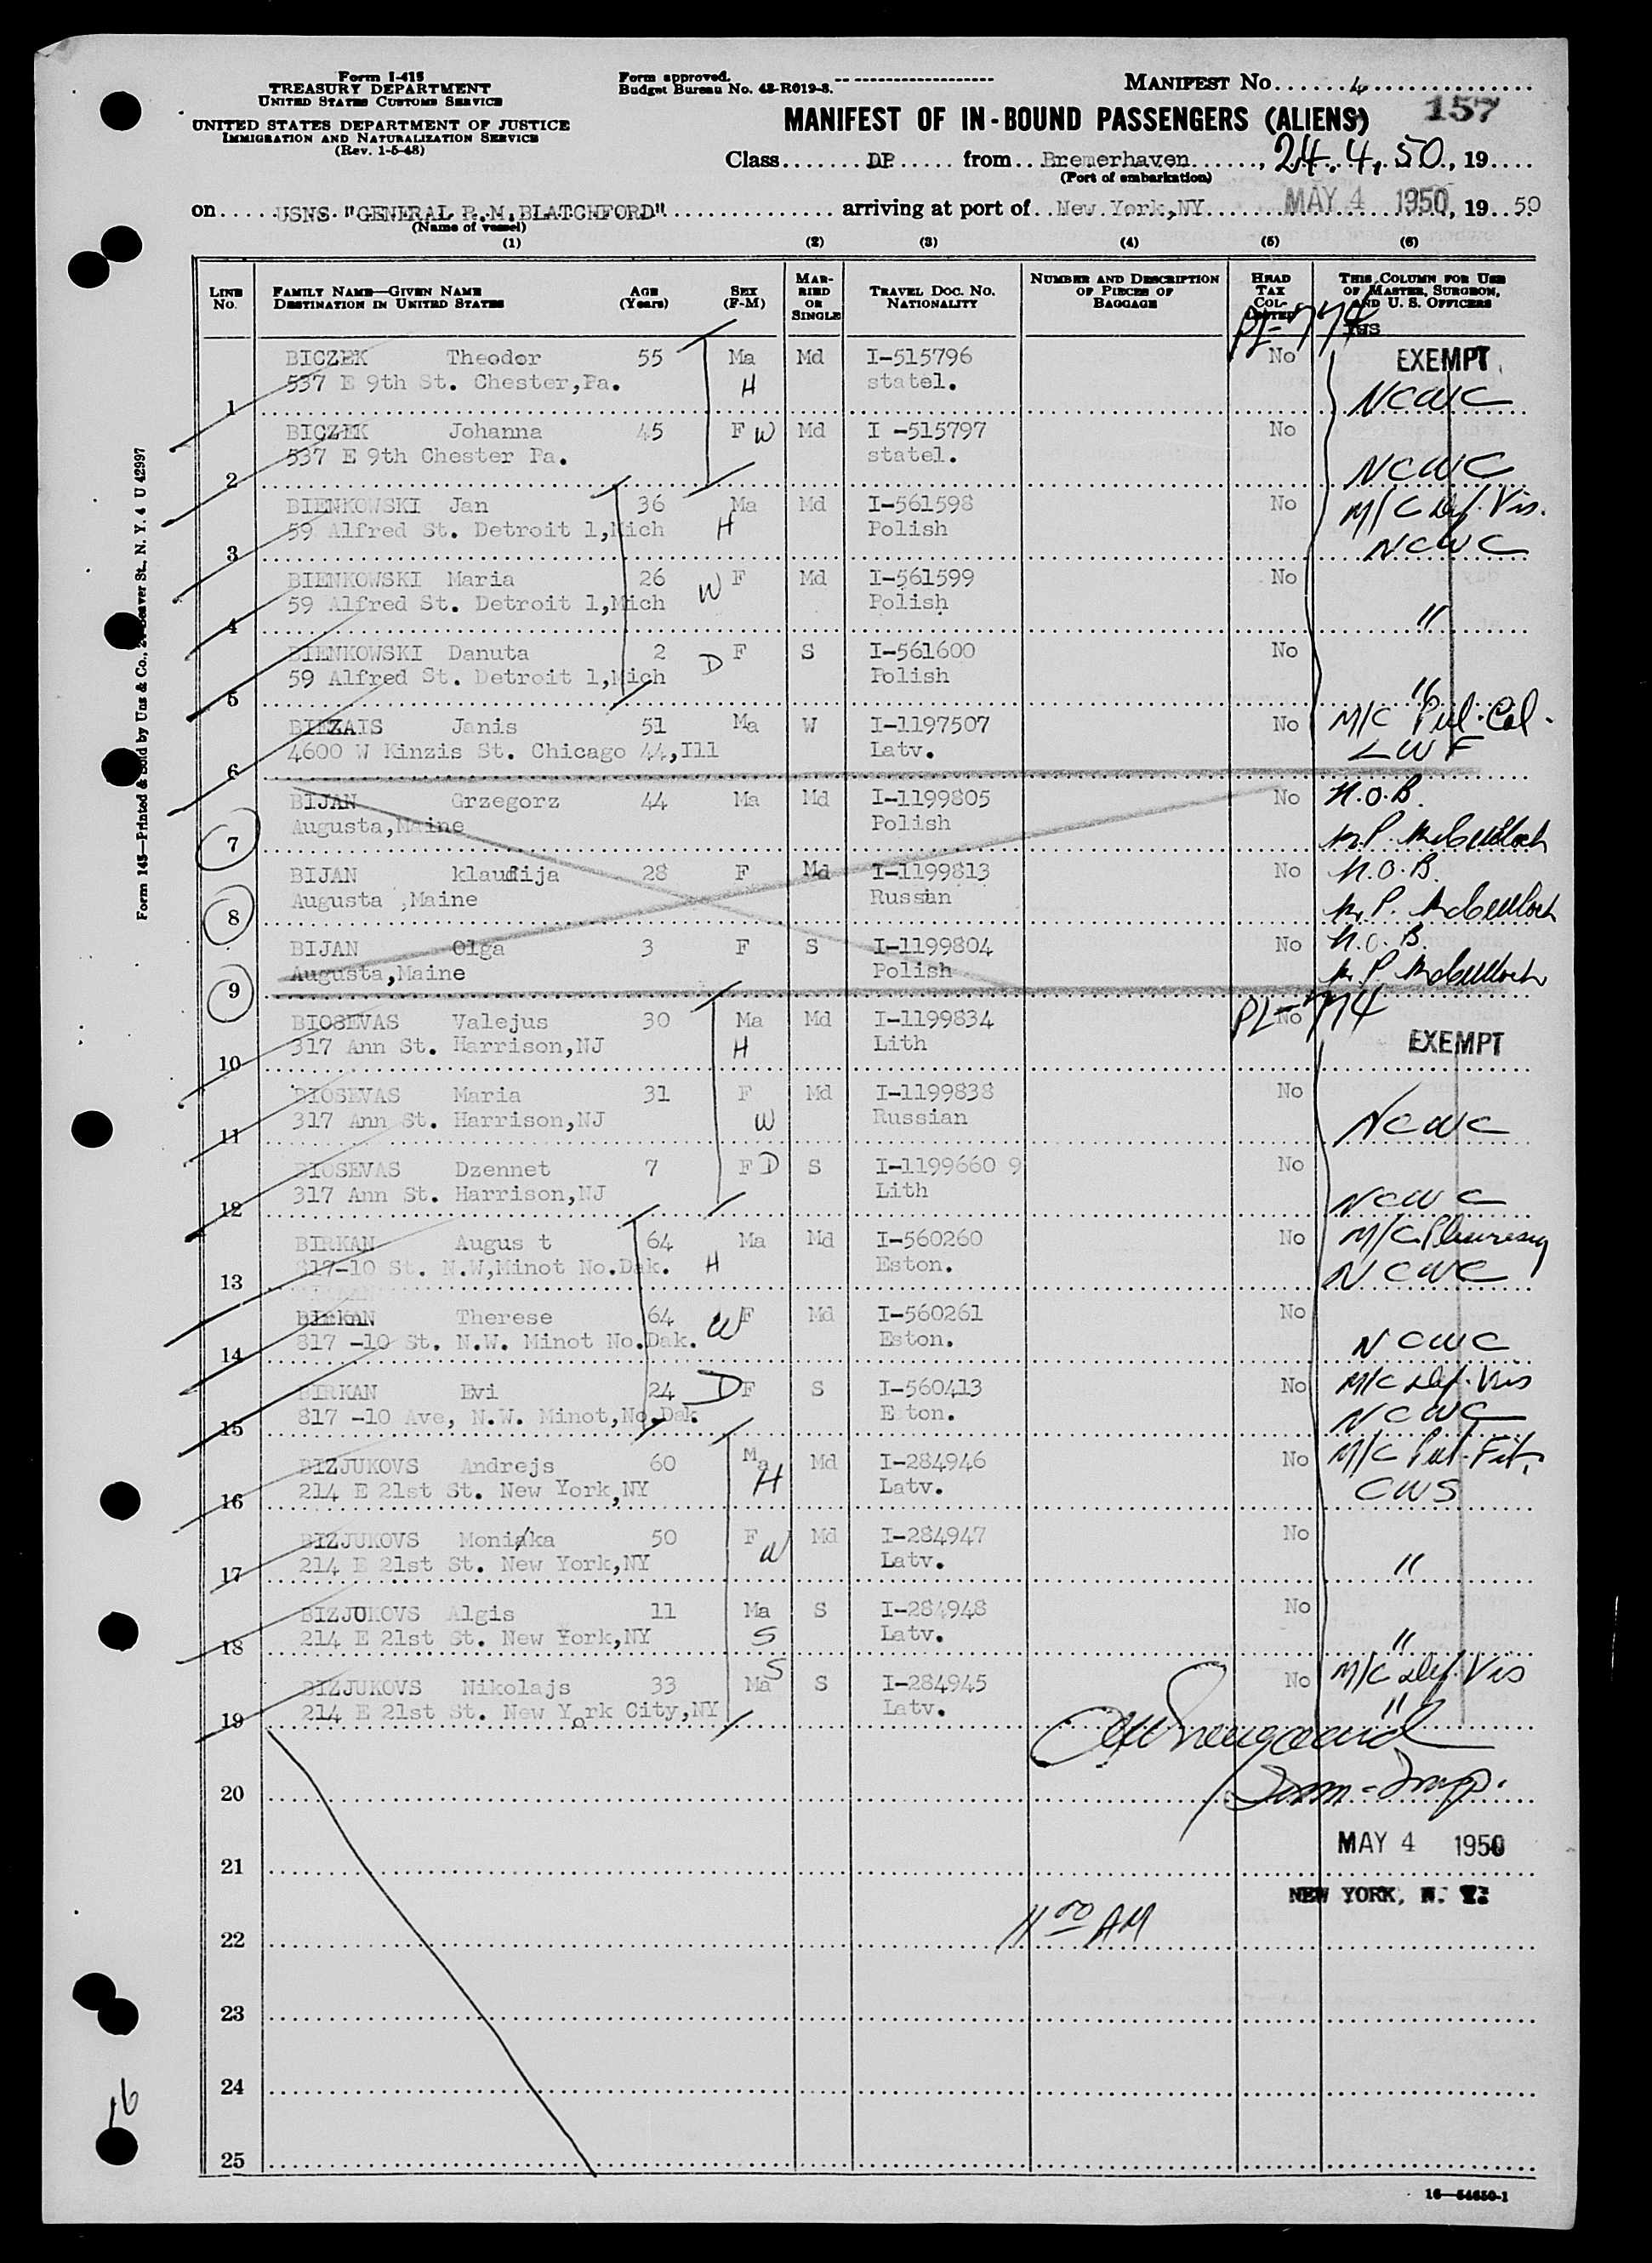 Form I-415
TREASURY DEPARTMENT
UNITED STATES CUSTOMS SERVICE
UNITED STATES DEPARTMENT OF JUSTICE
IMMIGRATION AND NATURALIZATION SERVICE
(Rev. 1-5-48)
Form approved.
Budget Bureau No. 43-R019-3.
MANIFEST No. 4
157
MANIFEST OF IN-BOUND PASSENGERS (ALIENS)
Class DP from Bremerhaven, 24.4.50, 19
(Port of embarkation)
on USNS "GENERAL R.M. BLATCHFORD" arriving at port of New York,NY MAY 4 1950, 19 50
(Name of vessel)
(1) (2) (3) (4) (5) (6)
LINE No. FAMILY NAME—GIVEN NAME DESTINATION IN UNITED STATES AGE (Years) SEX (F-M) MARRIED OR SINGLE TRAVEL DOC. NO. NATIONALITY NUMBER AND DESCRIPTION OF PIECES OF BAGGAGE HEAD TAX COLLECTED THIS COLUMN FOR USE OF MASTER, SURGEON, AND U. S. OFFICERS
PL-774 INS
BICZEK Theodor 55 Ma Md I-515796 No EXEMPT
537 E 9th St. Chester,Pa. H statel. NCWC
1
BICZEK Johanna 45 F W Md I -515797 No
537 E 9th Chester Pa. statel. NCWC
2
BIENKOWSKI Jan 36 Ma Md I-561598 No M/C Def. Vis.
59 Alfred St. Detroit 1,Mich H Polish NCWC
3
BIENKOWSKI Maria 26 W F Md I-561599 No
59 Alfred St. Detroit 1,Mich Polish "
4
BIENKOWSKI Danuta 2 D F S I-561600 No
59 Alfred St. Detroit 1,Mich Polish "
5
BIEZAIS Janis 51 Ma W I-1197507 No M/C Pul. Cal.
4600 W Kinzis St. Chicago 44,Ill Latv. LWF
6
BIJAN Grzegorz 44 Ma Md I-1199805 No N.O.B.
Augusta,Maine Polish
7
BIJAN klaudija 28 F Md I-1199813 No N.O.B.
Augusta ,Maine Russian
8
BIJAN Olga 3 F S I-1199804 No N.O.B.
Augusta,Maine Polish
9
PL-774
BIOSEVAS Valejus 30 Ma Md I-1199834 No
317 Ann St. Harrison,NJ H Lith EXEMPT
10
BIOSEVAS Maria 31 F Md I-1199838 No
317 Ann St. Harrison,NJ W Russian NCWC
11
BIOSEVAS Dzennet 7 F D S I-1199660 9 No
317 Ann St. Harrison,NJ Lith NCWC
12
BIRKAN Augus t 64 Ma Md I-560260 No M/C Pleuresy
817-10 St. N.W,Minot No.Dak. H Eston. NCWC
13
BIrkaN Therese 64 W F Md I-560261 No
817 -10 St. N.W. Minot No.Dak. Eston. NCWC
14
BIRKAN Evi 24 D F S I-560413 No M/C Def. Vis
817 -10 Ave, N.W. Minot,No.Dak E ton. NCWC
15
BIZJUKOVS Andrejs 60 Ma Md I-284946 No M/C Pul. Fib.
214 E 21st St. New York,NY H Latv. CWS
16
BIZJUKOVS Monika 50 F W Md I-284947 No
214 E 21st St. New York,NY Latv. "
17
BIZJUKOVS Algis 11 Ma S I-284948 No
214 E 21st St. New York,NY S Latv. "
18
BIZJUKOVS Nikolajs 33 Ma S S I-284945 No M/C Def. Vis
214 E 21st St. New York City,NY Latv. "
19
20 Imm-Insp.
MAY 4 1950
21
NEW YORK, N. Y.
11 00 AM
22
23
24
25
16—54650-1
Form 145—Printed & Sold by Unz & Co., 24 Beaver St., N. Y. 4 U 42997
16